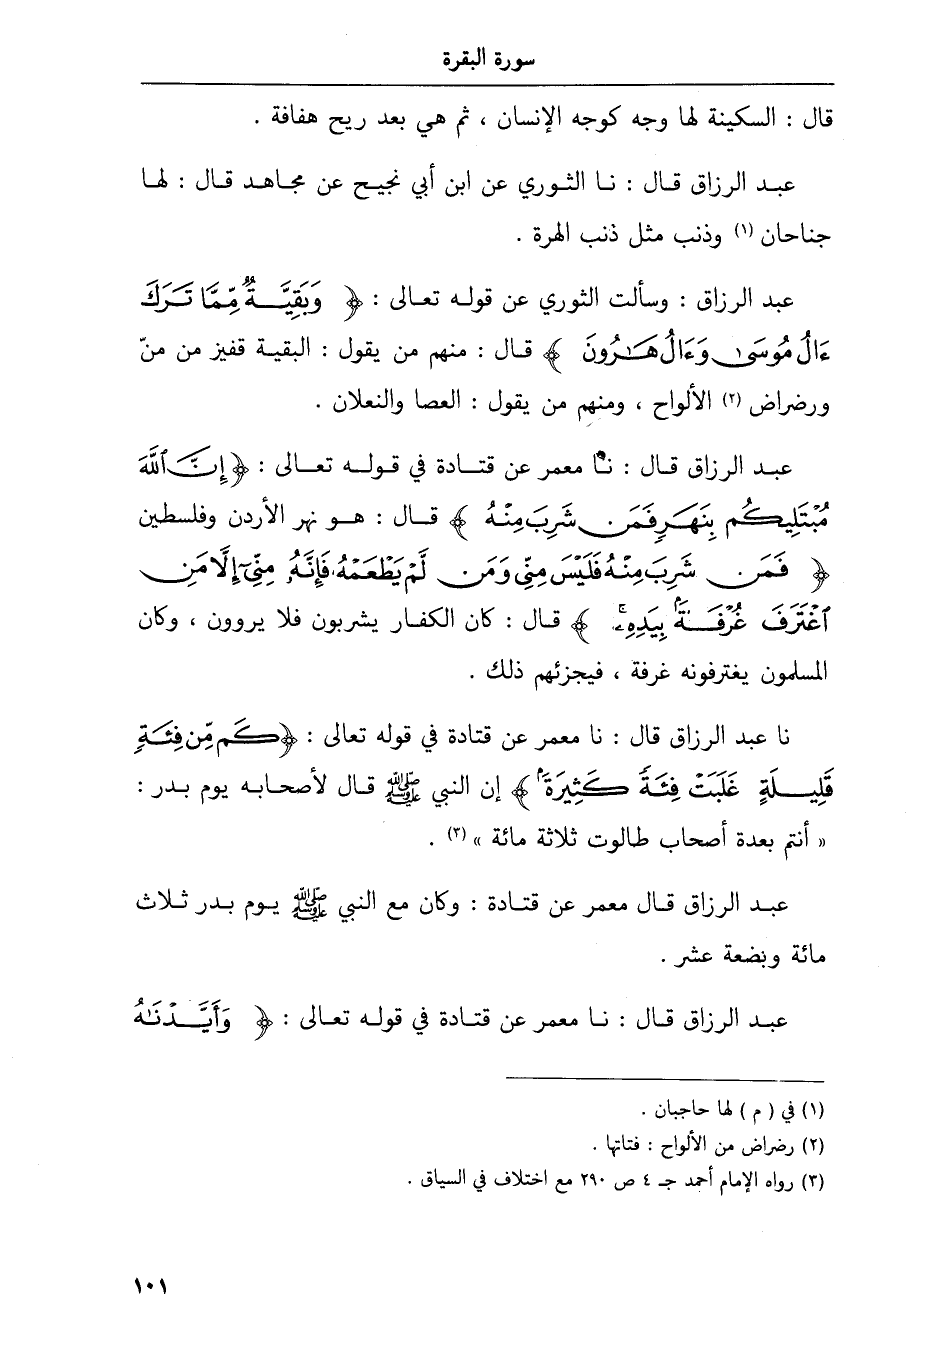 سورة البقرة
قال : السكينة لها وجه كوجه الإنسان ، ثم هي بعد ريح هفافة .
عبد الرزاق قال : نا الثوري عن ابن أبي نجيح عن مجاهد قال : لها
جناحان (١) وذنب مثل ذنب الهرة .
عبد الرزاق : وسألت الثوري عن قوله تعالى : ﴿ وَبَقِيَّةٌ مِّمَّا تَرَكَ
ءَالُ مُوسَىٰ وَءَالُ هَٰرُونَ ﴾ قال : منهم من يقول : البقية قفيز من منّ
ورضراض (٢) الألواح ، ومنهم من يقول : العصا والنعلان .
عبد الرزاق قال : نا معمر عن قتادة في قوله تعالى : ﴿ إِنَّ ٱللَّهَ
مُبْتَلِيكُم بِنَهَرٍ فَمَن شَرِبَ مِنْهُ ﴾ قال : هو نهر الأردن وفلسطين
﴿ فَمَن شَرِبَ مِنْهُ فَلَيْسَ مِنِّى وَمَن لَّمْ يَطْعَمْهُ فَإِنَّهُۥ مِنِّىٓ إِلَّا مَنِ
ٱغْتَرَفَ غُرْفَةًۢ بِيَدِهِۦۚ ﴾ قال : كان الكفار يشربون فلا يروون ، وكان
المسلمون يغترفونه غرفة ، فيجزئهم ذلك .
نا عبد الرزاق قال : نا معمر عن قتادة في قوله تعالى : ﴿ كَم مِّن فِئَةٍ
قَلِيلَةٍ غَلَبَتْ فِئَةً كَثِيرَةًۢ ﴾ إن النبي ﷺ قال لأصحابه يوم بدر :
« أنتم بعدة أصحاب طالوت ثلاثة مائة » (٣) .
عبد الرزاق قال معمر عن قتادة : وكان مع النبي ﷺ يوم بدر ثلاث
مائة وبضعة عشر .
عبد الرزاق قال : نا معمر عن قتادة في قوله تعالى : ﴿ وَأَيَّدْنَٰهُ
(١) في ( م ) لها حاجبان .
(٢) رضراض من الألواح : فتاتها .
(٣) رواه الإمام أحمد جـ ٤ ص ٢٩٠ مع اختلاف في السياق .
١٠١